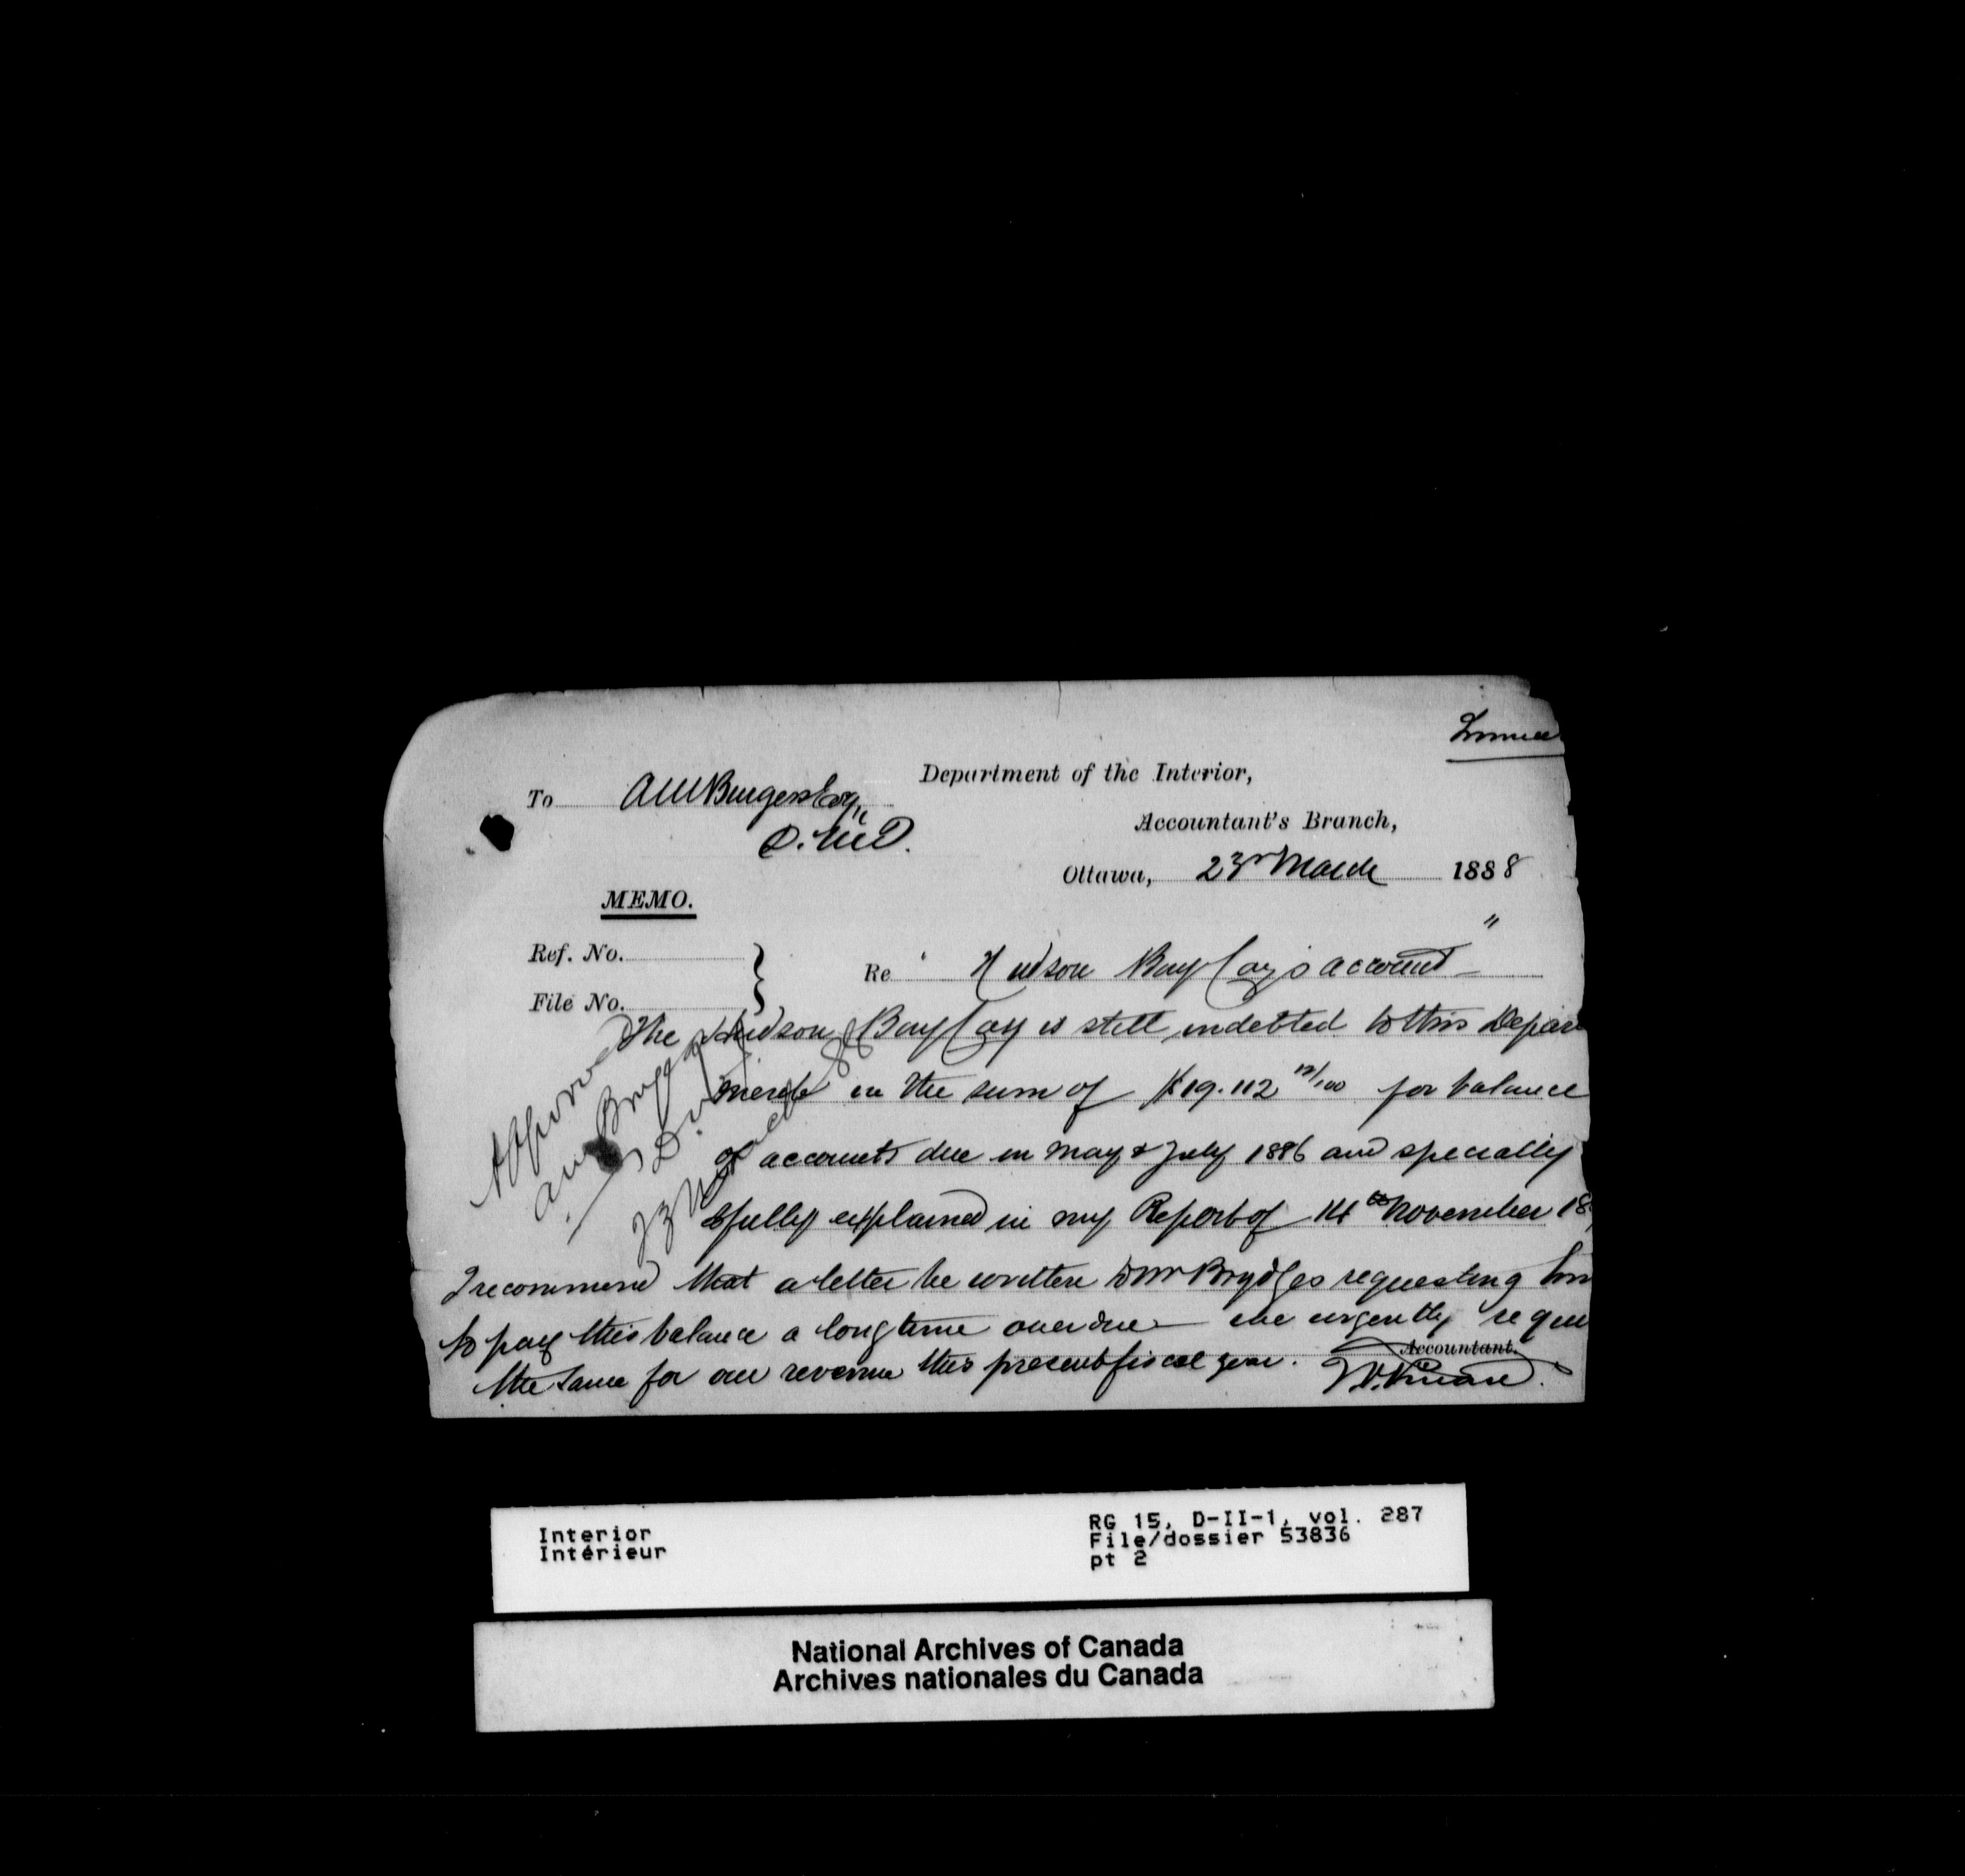 Department of the Interior,
To A M Burgess Esq,
D.M.D.
Accountant's Branch,
Ottawa, 23r March 1888
MEMO.
Ref. No.
File No.
Re " Hudson Bay Coy's account "
The Hudson Bay Coy is still indebted to this Depart
ment in the sum of $19.112 12/100 for balance
of accounts due in May & July 1886 and specially
& fully explained in my Report of 14th November 18
I recommend that a letter be written to Mr Brydges requesting him
to pay this balance a long time overdue — we urgently requi
the same for our revenue this present fiscal year.
Accountant.
Approved
23 March 88
Interior
Intérieur
RG 15, D-II-1, vol. 287
File/dossier 53836
pt 2
National Archives of Canada
Archives nationales du Canada